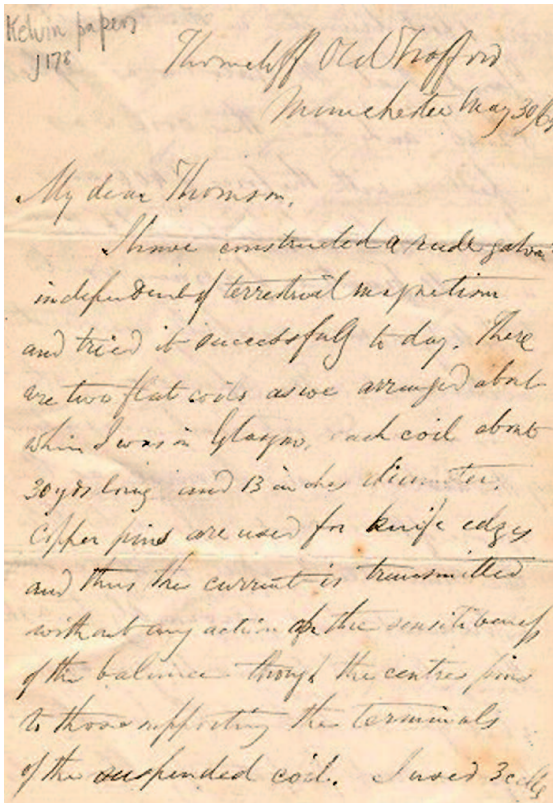 Kelvin papers
J178
Thorncliff Old Trafford
Manchester May 30/
My dear Thomson,
I have constructed a rude galva
independent of terrestrial magnetism
and tried it successfully to day. There
are two flat coils as we arranged about
when I was in Glasgow, each coil about
30 yds long and 13 inches diameter.
Copper pins are used for knife edges
and thus the current is transmitted
without any action on the sensitiveness
of the balance through the centres pins
to those supporting the terminals
of the suspended coil. I used 3 cells